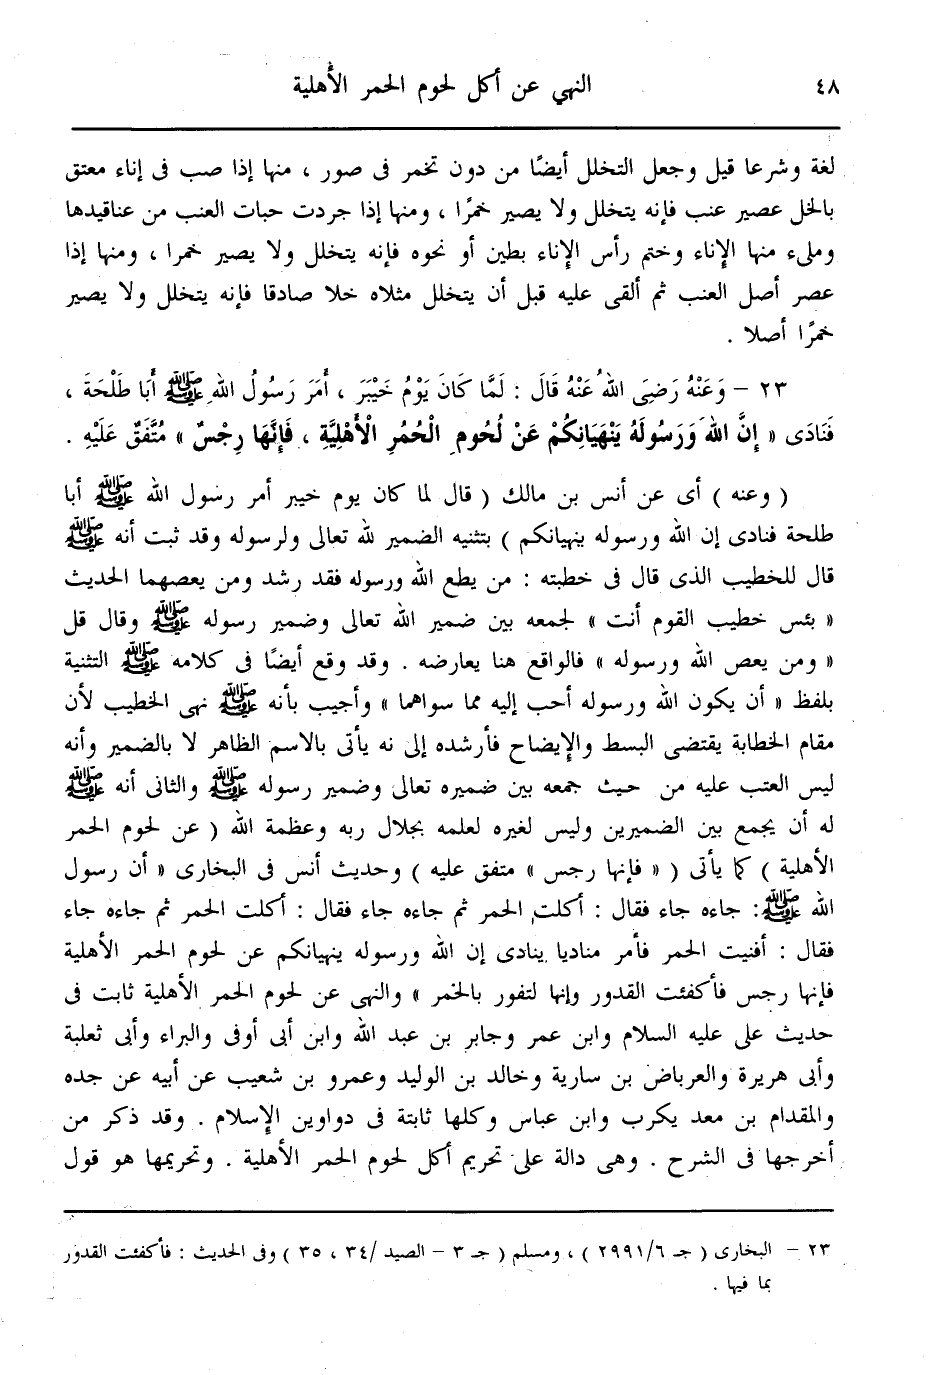 ٤٨ النهي عن أكل لحوم الحمر الأهلية
لغة وشرعا قيل وجعل التخلل أيضًا من دون تخمر فى صور ، منها إذا صب فى إناء معتق
بالخل عصير عنب فإنه يتخلل ولا يصير خمرًا ، ومنها إذا جردت حبات العنب من عناقيدها
وملىء منها الإناء وختم رأس الإناء بطين أو نحوه فإنه يتخلل ولا يصير خمرا ، ومنها إذا
عصر أصل العنب ثم ألقى عليه قبل أن يتخلل مثلاه خلا صادقا فإنه يتخلل ولا يصير
خمرًا أصلا .
٢٣ – وَعَنْهُ رَضِىَ اللهُ عَنْهُ قَالَ : لَمَّا كَانَ يَوْمُ خَيْبَرَ ، أَمَرَ رَسُولُ اللهِ ﷺ أَبَا طَلْحَةَ ،
فَنَادَى « إِنَّ اللهَ وَرَسُولَهُ يَنْهَيَانِكُمْ عَنْ لُحُومِ الْحُمُرِ الْأَهْلِيَّةِ ، فَإِنَّهَا رِجْسٌ » مُتَّفَقٌ عَلَيْهِ .
( وعنه ) أى عن أنس بن مالك ( قال لما كان يوم خيبر أمر رسول الله ﷺ أبا
طلحة فنادى إن الله ورسوله ينهيانكم ) بتثنيه الضمير لله تعالى ولرسوله وقد ثبت أنه ﷺ
قال للخطيب الذى قال فى خطبته : من يطع الله ورسوله فقد رشد ومن يعصهما الحديث
« بئس خطيب القوم أنت » لجمعه بين ضمير الله تعالى وضمير رسوله ﷺ وقال قل
« ومن يعص الله ورسوله » فالواقع هنا يعارضه . وقد وقع أيضًا فى كلامه ﷺ التثنية
بلفظ « أن يكون الله ورسوله أحب إليه مما سواهما » وأجيب بأنه ﷺ نهى الخطيب لأن
مقام الخطابة يقتضى البسط والإيضاح فأرشده إلى نه يأتى بالاسم الظاهر لا بالضمير وأنه
ليس العتب عليه من حيث جمعه بين ضميره تعالى وضمير رسوله ﷺ والثانى أنه ﷺ
له أن يجمع بين الضميرين وليس لغيره لعلمه بجلال ربه وعظمة الله ( عن لحوم الحمر
الأهلية ) كما يأتى ( « فإنها رجس » متفق عليه ) وحديث أنس فى البخارى « أن رسول
الله ﷺ : جاءه جاء فقال : أكلت الحمر ثم جاءه جاء فقال : أكلت الحمر ثم جاءه جاء
فقال : أفنيت الحمر فأمر مناديا ينادى إن الله ورسوله ينهيانكم عن لحوم الحمر الأهلية
فإنها رجس فأكفئت القدور وإنها لتفور بالخمر » والنهى عن لحوم الحمر الأهلية ثابت فى
حديث على عليه السلام وابن عمر وجابر بن عبد الله وابن أبى أوفى والبراء وأبى ثعلبة
وأبى هريرة والعرباض بن سارية وخالد بن الوليد وعمرو بن شعيب عن أبيه عن جده
والمقدام بن معد يكرب وابن عباس وكلها ثابتة فى دواوين الإسلام . وقد ذكر من
أخرجها فى الشرح . وهى دالة على تحريم أكل لحوم الحمر الأهلية . وتحريمها هو قول
٢٣ – البخارى ( جـ ٦/ ٢٩٩١ ) ، ومسلم ( جـ ٣ – الصيد /٣٤ ، ٣٥ ) وفى الحديث : فأكفئت القدور
بما فيها .